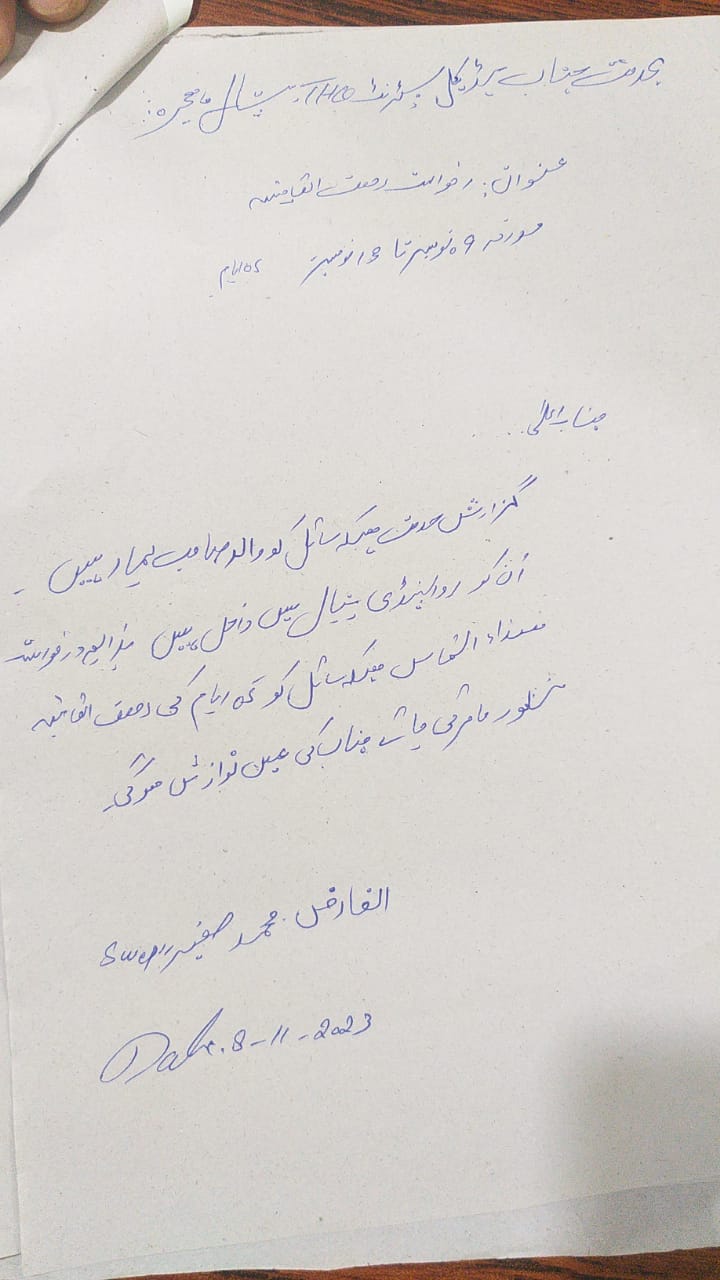 بخدمت جناب میڈیکل سپرنٹنڈنٹ THQ ہسپتال
عنوان: درخواست رخصت اتفاقیہ
مورخہ 09 نومبر تا 13 نومبر 05 ایام
جناب اعلٰی
گزارش خدمت ہیکہ سائل کو والد صاحب بیمار ہیں ۔
اُن کو راولپنڈی ہسپتال میں داخل ہیں بذریعہ درخواست
ہذاء التماس ہیکہ سائل کو 05 ایام کی رخصت اتفاقیہ
منظور فامرئی جائے جناب کی عین نوازش ہوگی۔
العارض محمد صغیر Sweper
Date. 8-11-2023